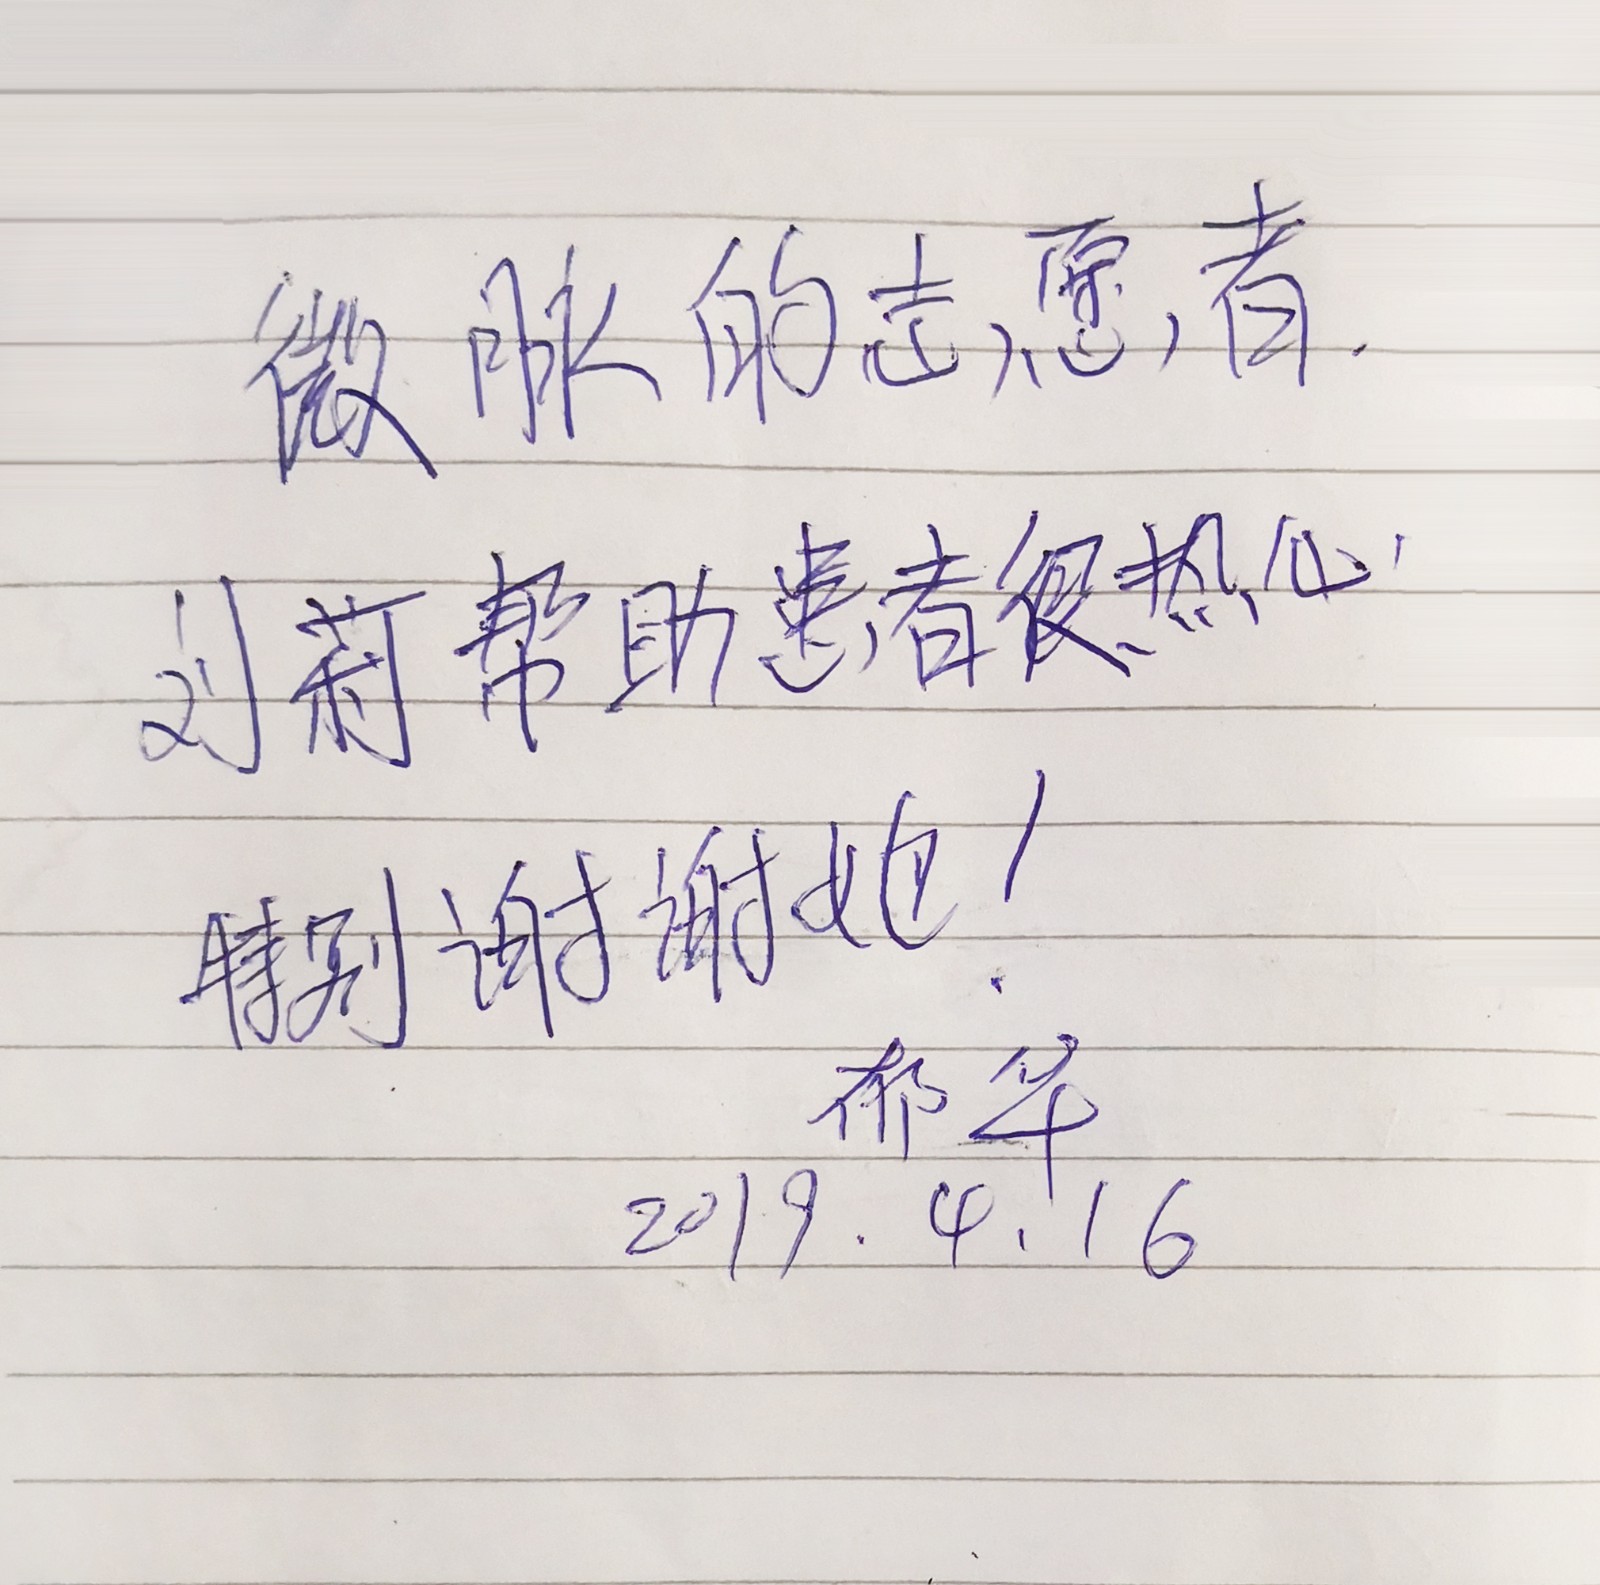 微脉的志愿者.
刘莉帮助患者很热心
特别谢谢她!
郁华
2019.4.16